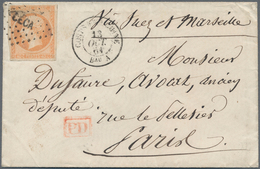 Via Suez et Marseille
13
OCT.
Monsieur
Dufaure, avocat, ancien
député rue le Pelletier
PD
Paris